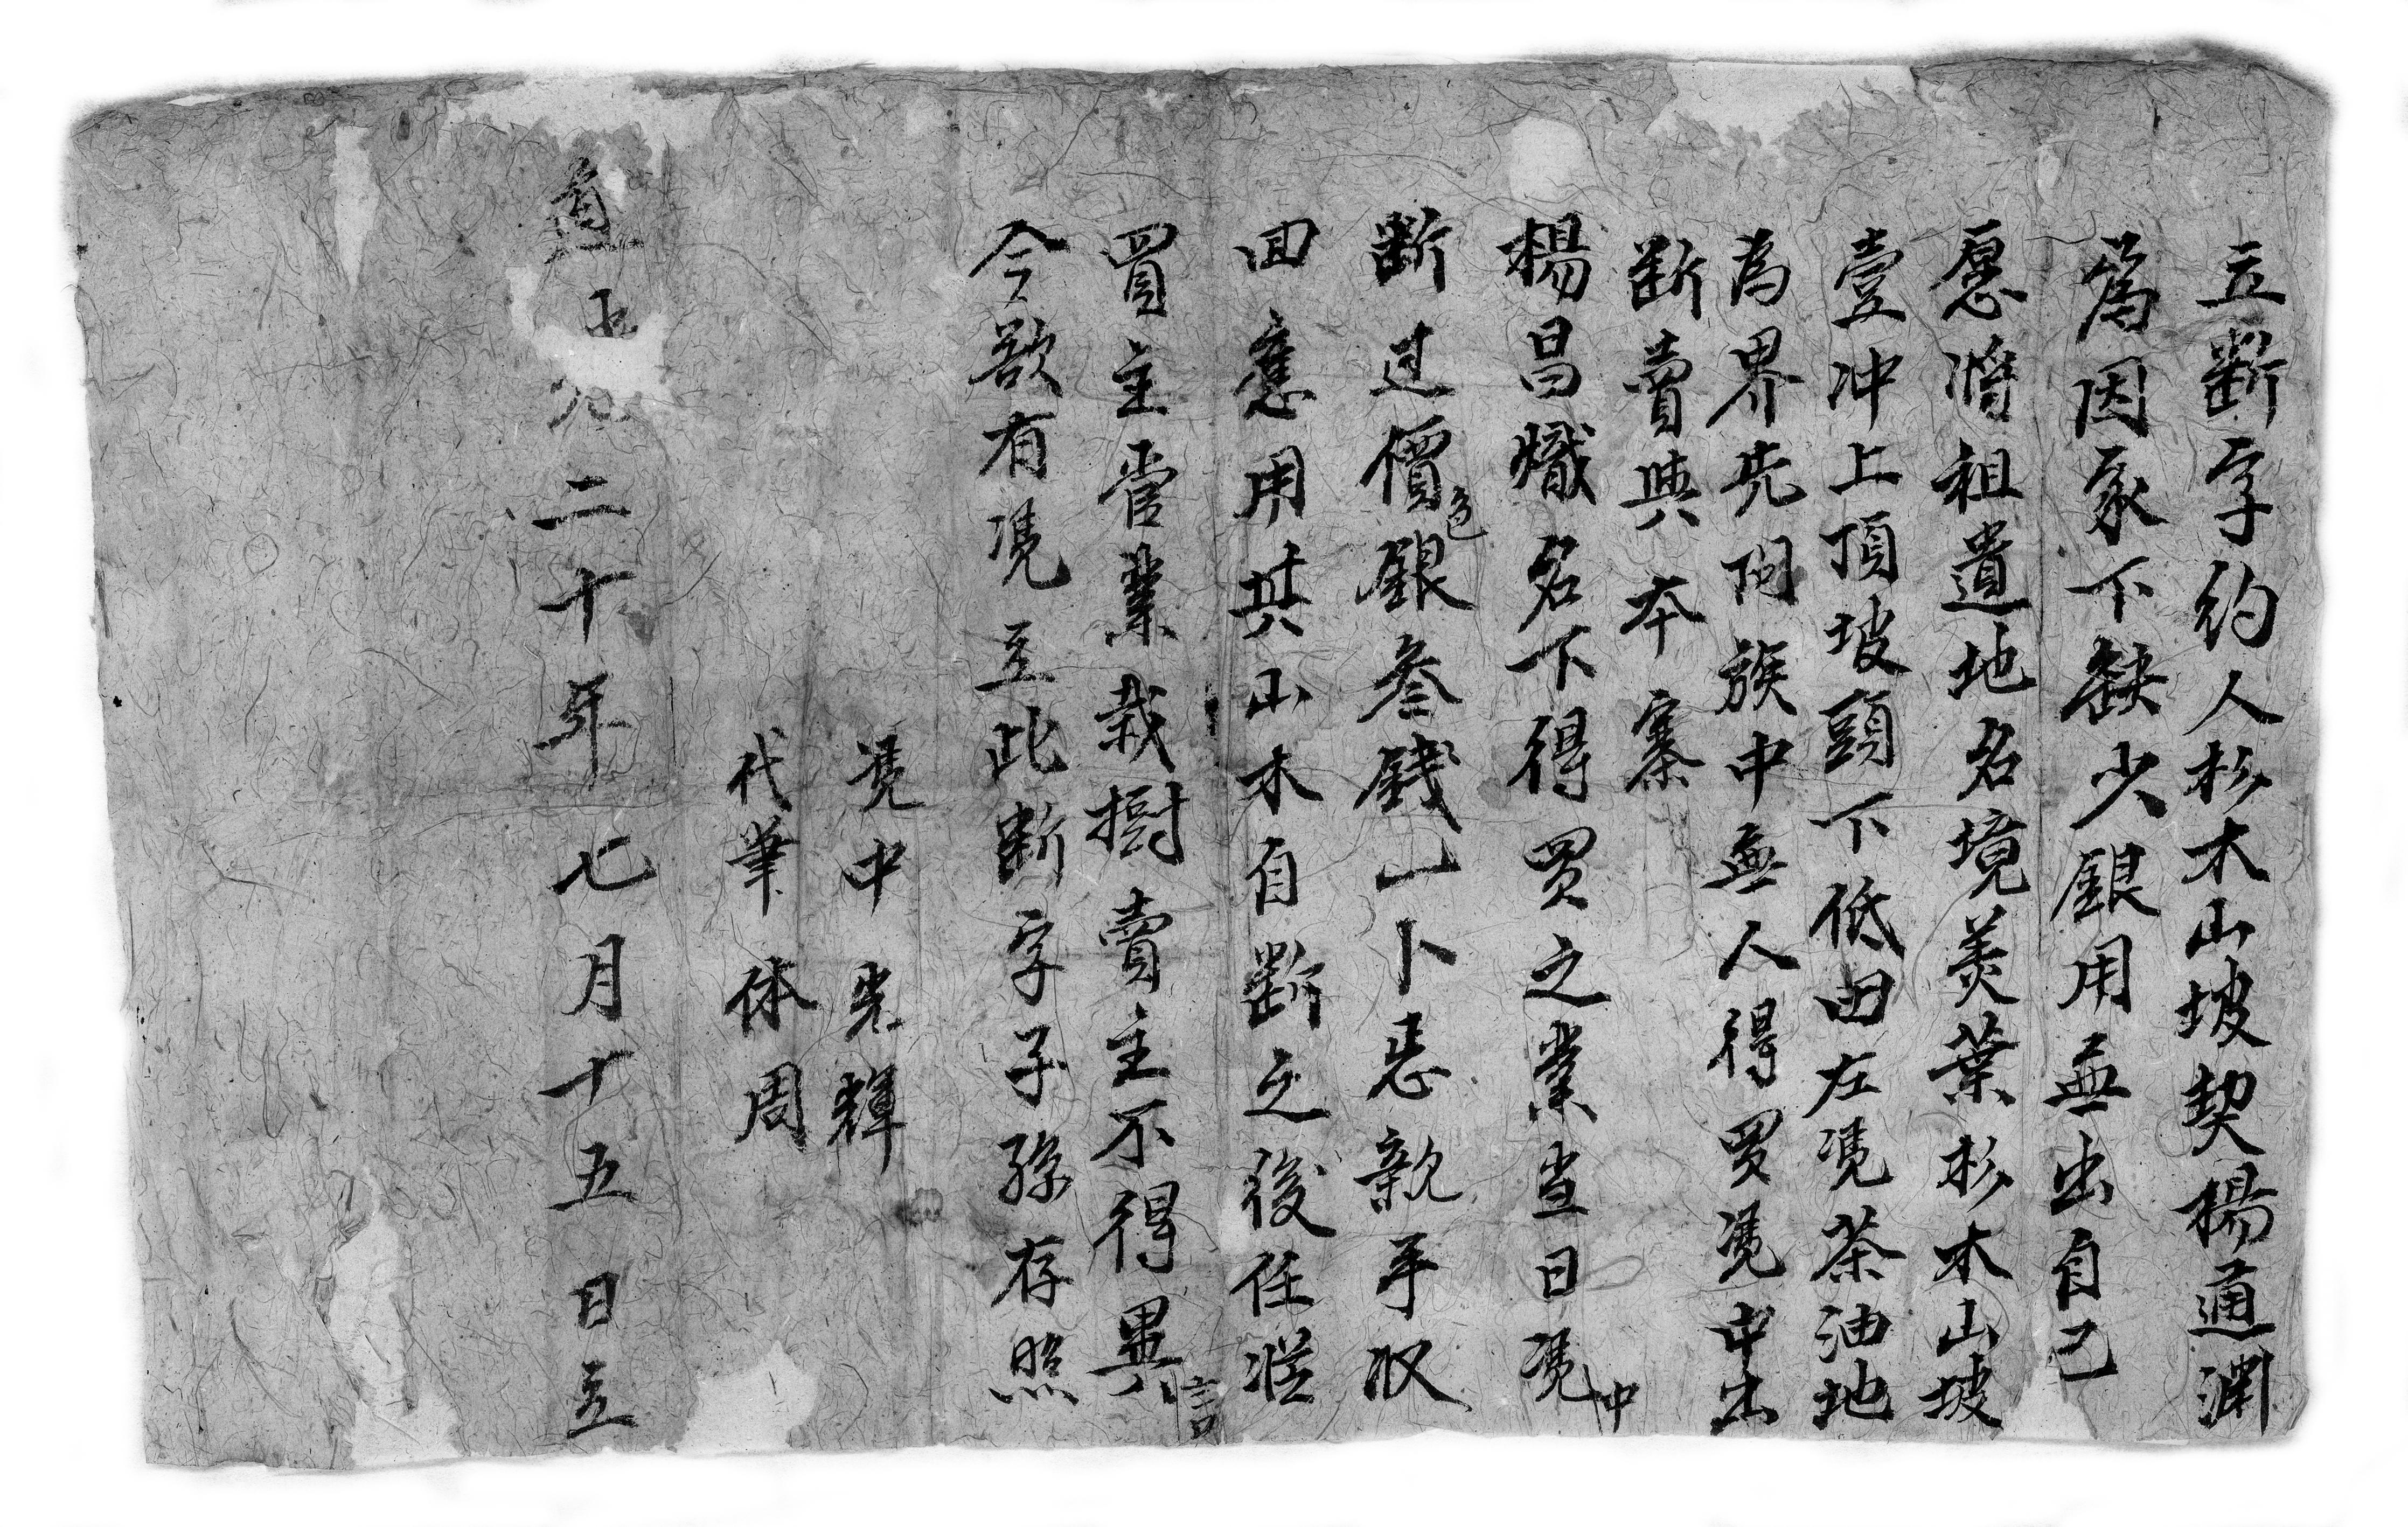 立断字約人杉木山坡契楊通渊
為因家下缺少銀用無出自己
愿將祖遺地名境美葉杉木山坡
壹冲上頂坡頭下低田左凴茶油地
為界先问族中無人得買凴中出
断賣與本寨
楊昌熾名下得買之業当日凴中
断过價色銀叁錢一卜悉親手収
回應用其山木自断之後任從
買主管業栽樹賣主不得異言
今欲有凴立此断字子孫存照
凴中 光輝
代筆 体周
道光二十年七月十五日立